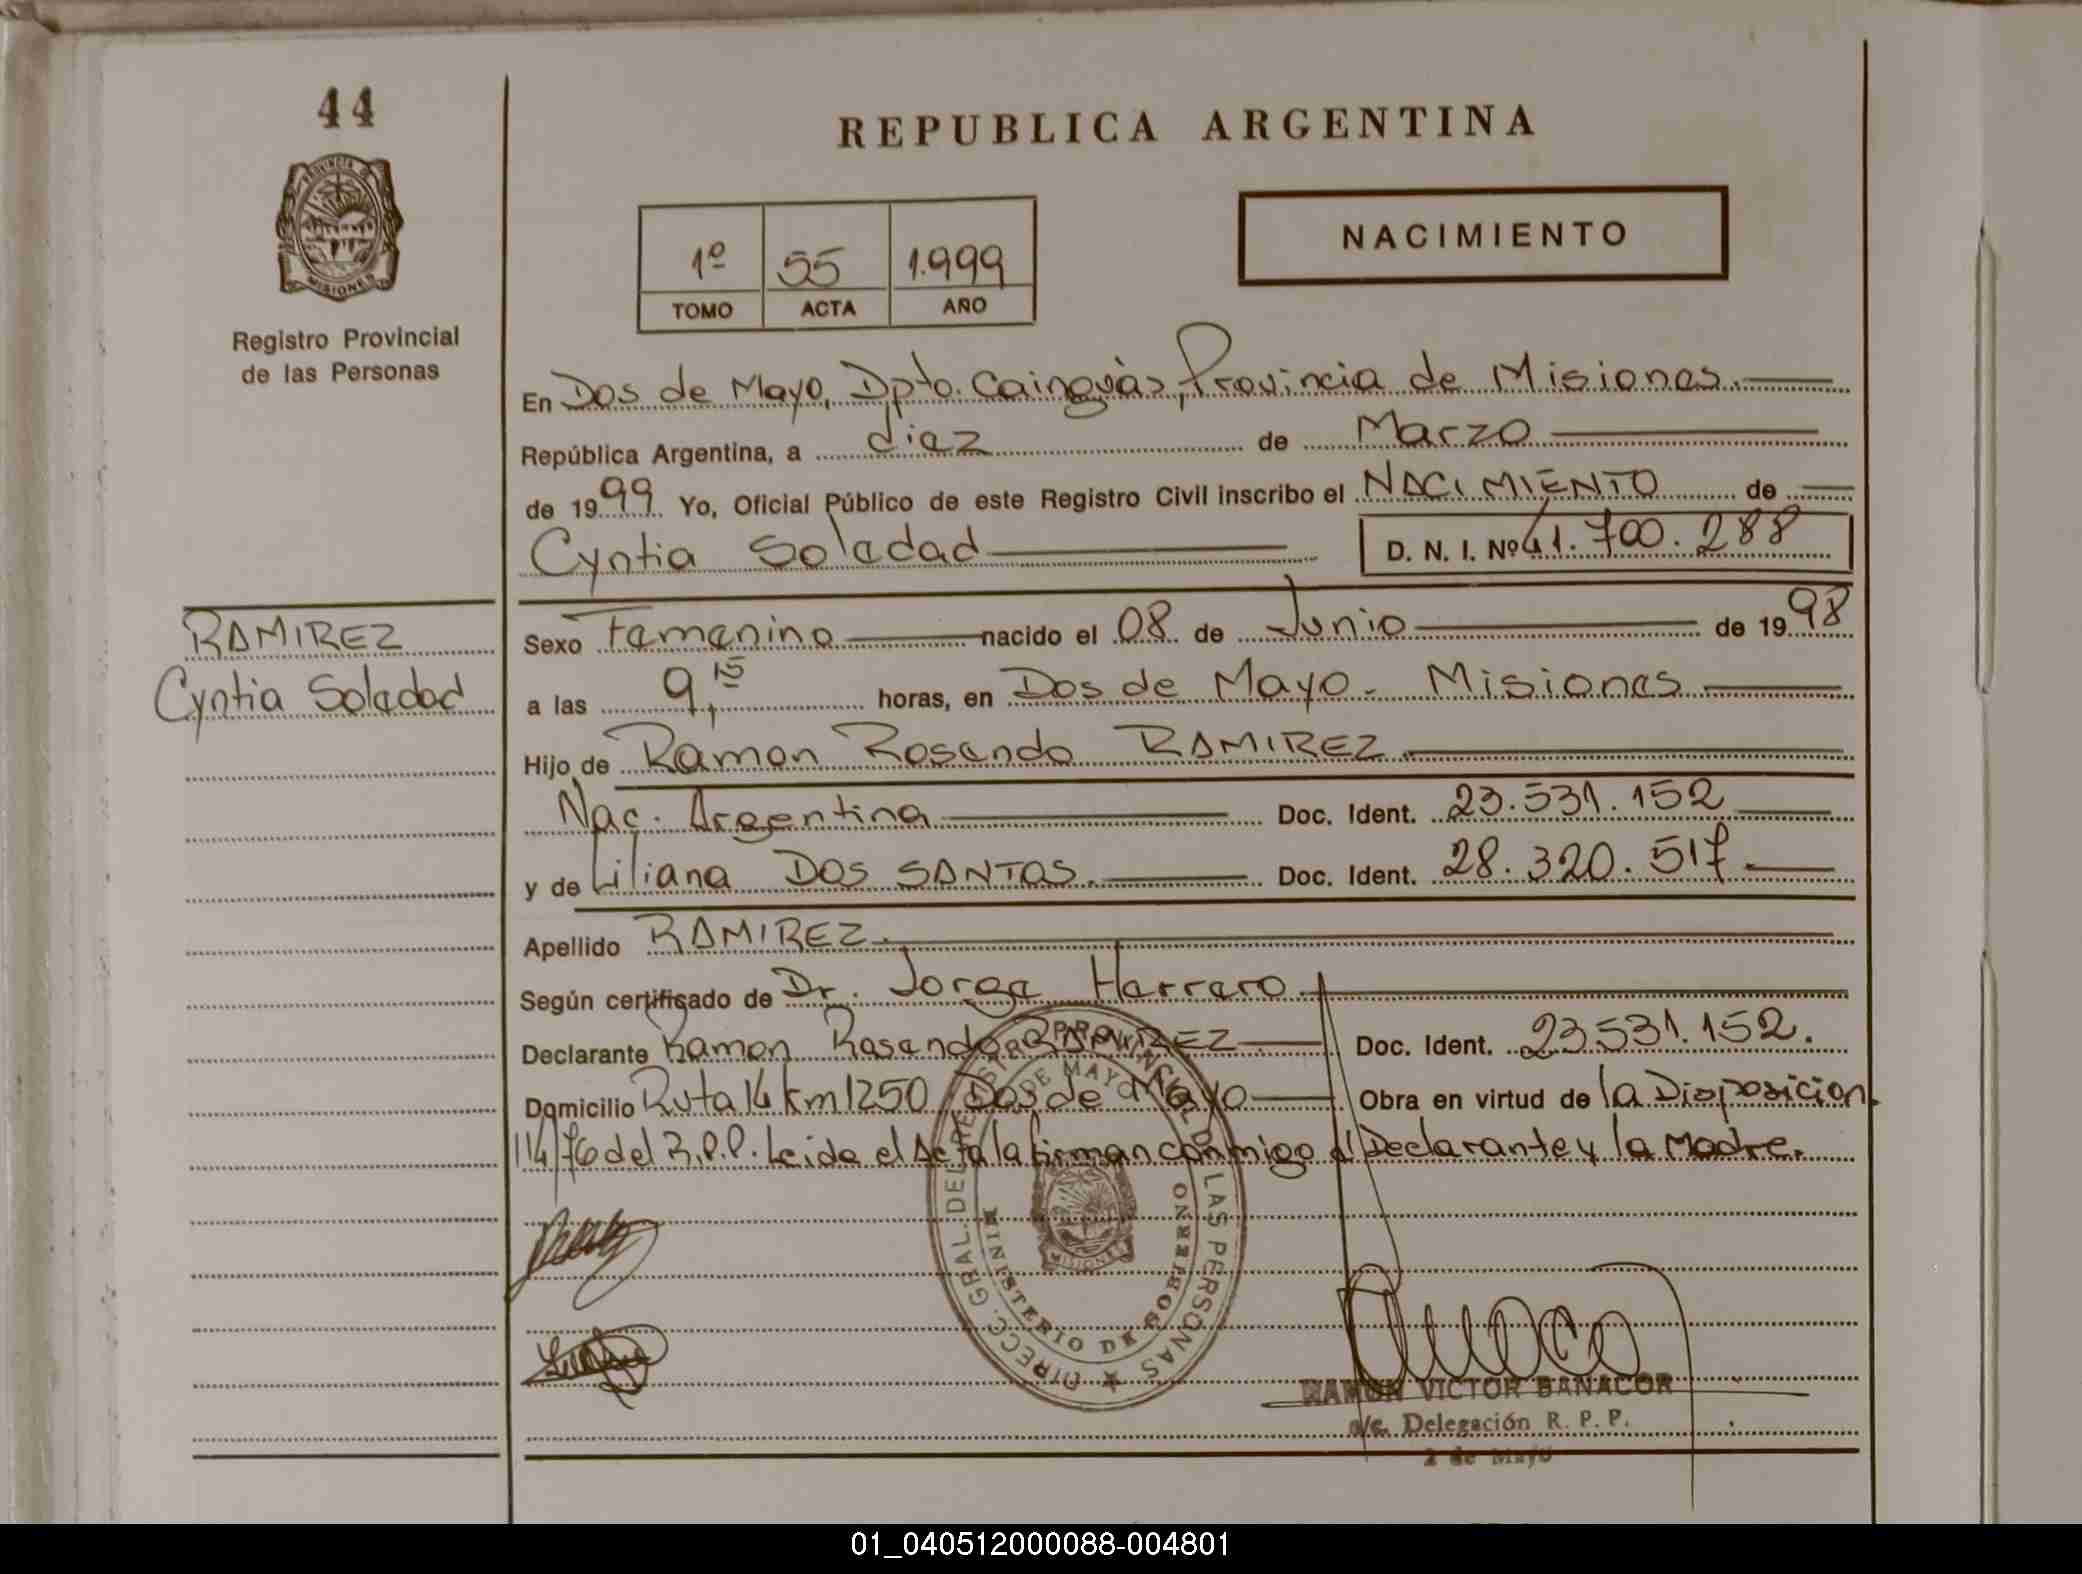 44
PROVINCIA DE
MISIONES
Registro Provincial
de las Personas
REPUBLICA ARGENTINA
1º 55 1.999
TOMO ACTA AÑO
NACIMIENTO
En Dos de Mayo, Dpto. Cainguás, Provincia de Misiones.
República Argentina, a diez de Marzo
de 1999 Yo, Oficial Público de este Registro Civil inscribo el NACIMIENTO de
Cyntia Soledad D. N. I. Nº 41.700.288
RAMIREZ
Cyntia Soledad
Sexo Femenino nacido el 08 de Junio de 1998
a las 9,15 horas, en Dos de Mayo - Misiones
Hijo de Ramon Rosendo RAMIREZ
Nac. Argentina Doc. Ident. 23.531.152
y de Liliana DOS SANTOS. Doc. Ident. 28.320.517
Apellido RAMIREZ.
Según certificado de Dr. Jorge Herrero
Declarante Ramon Rosendo RAMIREZ Doc. Ident. 23.531.152.
Domicilio Ruta 14 km 1250 Dos de Mayo Obra en virtud de la Disposicion
114/76 del R.P.P. Leida el Acta la firman conmigo el Declarante y la Madre.
DIRECC. GRAL. DEL REGISTRO PROVINCIAL DE LAS PERSONAS
DE MAYO
MINISTERIO DE GOBIERNO
MISIONES
RAMON VICTOR BANACOR
a/c. Delegación R. P. P.
2 de Mayo
01_040512000088-004801